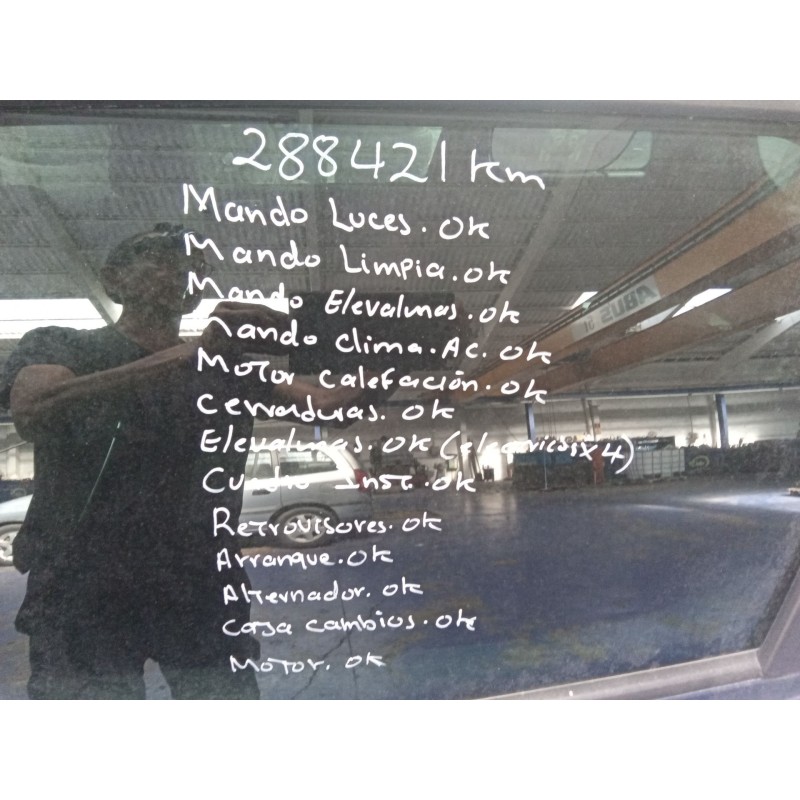 288421 km
Mando Luces. ok
Mando Limpia. ok
Mando Elevalunas. ok
Mando Clima. Ac. ok
Motor Calefación. ok
Cerraduras. ok
Elevalunas. ok (electricos x4)
Cuadro Inst. ok
Retrovisores. ok
Arranque. ok
Alternador. ok
Caja cambios. ok
Motor. ok
ABUS